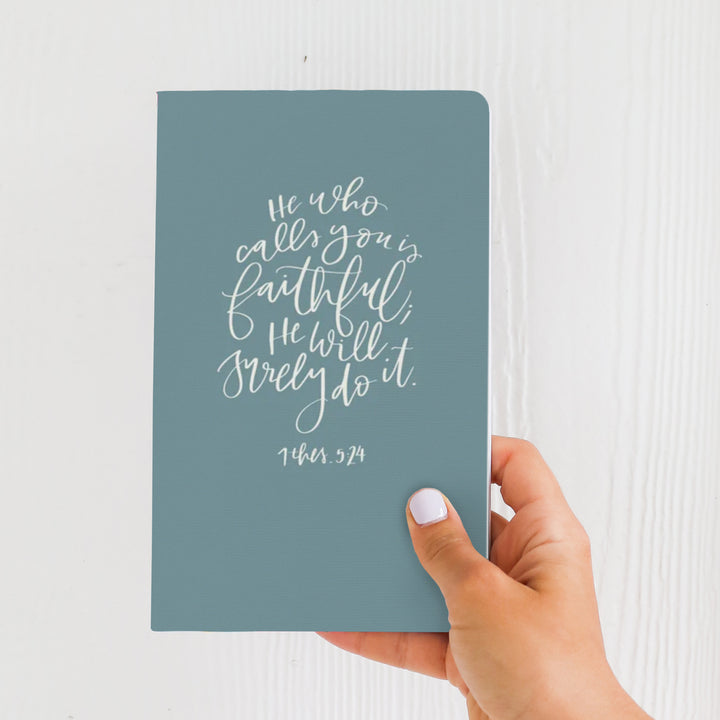 He who
calls you is
faithful;
He will
surely do it.
1 thes. 5:24